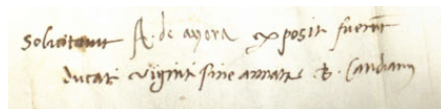 Solicitavit A. de ayora exposit fuerūt
ducati viginti sine annata B. Candianus